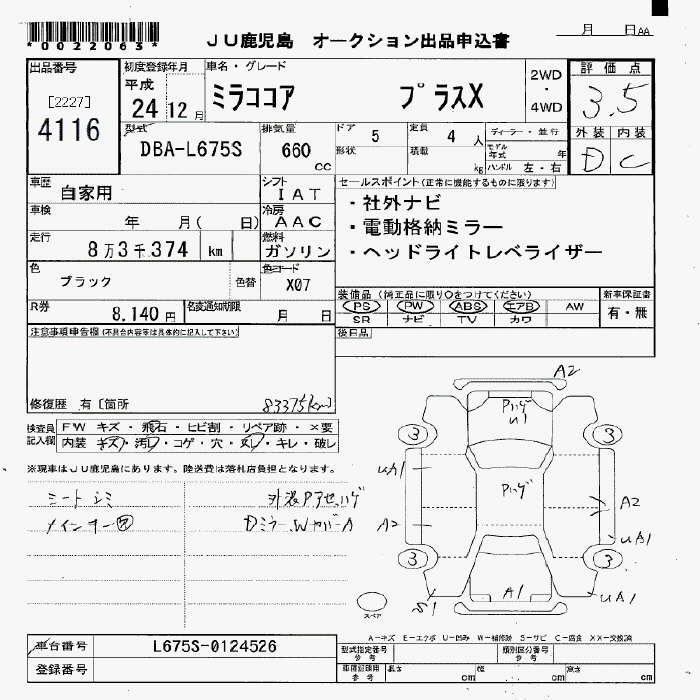 *0022063*
JU鹿児島 オークション出品申込書
月 日 AA
出品番号
[2227]
4116
初度登録年月
平成
24 12 月
車名・グレード
ミラココア プラスX
2WD
・
4WD
評価点
3.5
外装 内装
D C
型式
DBA-L675S
排気量
660
CC
ドア 5
形状
定員 4 人
積載 kg
ディーラー・並行
モデル年式 年
ハンドル 左・右
車歴
自家用
シフト
IAT
車検
年 月( 日)
冷房
AAC
走行
8万3千374 km
燃料
ガソリン
色
ブラック
色替
色コード
X07
R券
8.140 円
名変通知期限
月 日
セールスポイント(正常に機能するものに限ります)
・社外ナビ
・電動格納ミラー
・ヘッドライトレベライザー
装備品(純正品に限り○をつけてください)
PS PW ABS エアB AW
SR ナビ TV カワ
新車保証書
有・無
後日品
注意事項申告欄(不具合内容等は具体的に記入して下さい)
修復歴 有〔箇所
83375km
検査員記入欄
FW キズ・飛石・ヒビ割・リペア跡・×要
内装 キズ・汚レ・コゲ・穴・スレ・キレ・破レ
※現車はJU鹿児島にあります。陸送費は落札店負担となります。
シートシミ
DミラーWカバーA
A2
Pハゲ
U1
3
3
UA1
Pハゲ
A2
A2
UA1
3
3
A1
S1
UA1
スペア
A−キズ E−エクボ U−凹み W−補修跡 S−サビ C−腐食 XX−交換済
車台番号
L675S-0124526
登録番号
型式指定番号
参考
類別区分番号
参考
車両証明用
参考
長さ cm
幅 cm
高さ cm